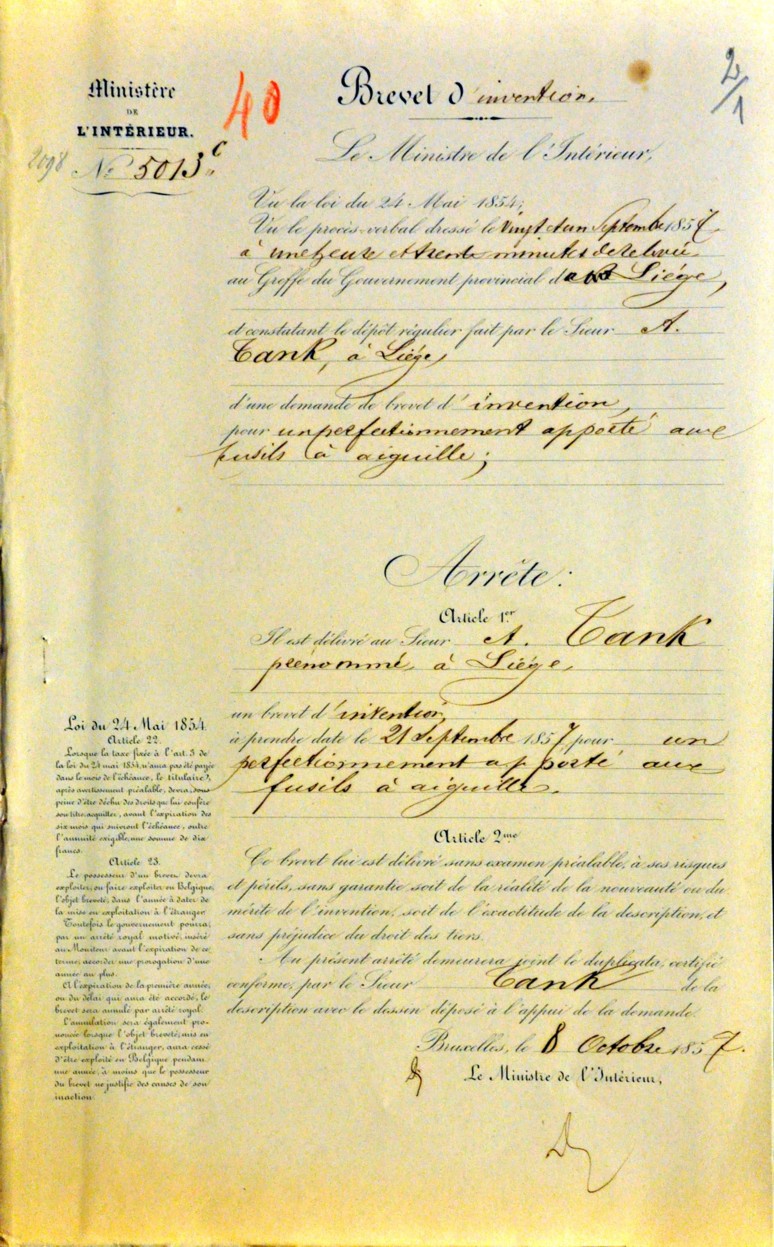 2/1
40
Ministère
DE
L'INTÉRIEUR.
2098
N.º 5013 c
Brevet d'invention.
Le Ministre de l'Intérieur,
Vu la loi du 24 Mai 1854;
Vu le procès-verbal dressé le vingt et un Septembre 1857,
à une heure et trente minutes de relevée
au Greffe du Gouvernement provincial de Liége,
et constatant le dépôt régulier fait par le Sieur A.
Tank, à Liége,
d'une demande de brevet d'invention,
pour un perfectionnement apporté aux
fusils à aiguille;
Arrête:
Article 1.er
Il est délivré au Sieur A. Tank
prénommé, à Liége,
un brevet d'invention,
à prendre date le 21 Septembre 1857, pour un
perfectionnement apporté aux
fusils à aiguille.
Article 2me
Ce brevet lui est délivré sans examen préalable, à ses risques
et périls, sans garantie soit de la réalité de la nouveauté ou du
mérite de l'invention, soit de l'exactitude de la description, et
sans préjudice du droit des tiers.
Au présent arrêté demeurera joint le duplicata, certifié
conforme, par le Sieur Tank de la
description avec le dessin déposé à l'appui de la demande.
Bruxelles, le 8 Octobre 1857.
Le Ministre de l'Intérieur,
Loi du 24 Mai 1854.
Article 22.
Lorsque la taxe fixée à l'art. 3 de
la loi du 24 mai 1854, n'aura pas été payée
dans le mois de l'échéance, le titulaire,
après avertissement préalable, devra, sous
peine d'être déchu des droits que lui confère
son titre, acquitter, avant l'expiration des
six mois qui suivront l'échéance, outre
l'annuité exigible, une somme de dix
francs.
Article 23.
Le possesseur d'un brevet devra
exploiter, ou faire exploiter en Belgique,
l'objet breveté, dans l'année à dater de
la mise en exploitation à l'étranger.
Toutefois le gouvernement pourra,
par un arrêté royal motivé, inséré
au Moniteur avant l'expiration de ce
terme, accorder une prorogation d'une
année au plus.
A l'expiration de la première année,
ou du délai qui aura été accordé, le
brevet sera annulé par arrêté royal.
L'annulation sera également pro-
noncée lorsque l'objet breveté, mis en
exploitation à l'étranger, aura cessé
d'être exploité en Belgique pendant
une année, à moins que le possesseur
du brevet ne justifie des causes de son
inaction.